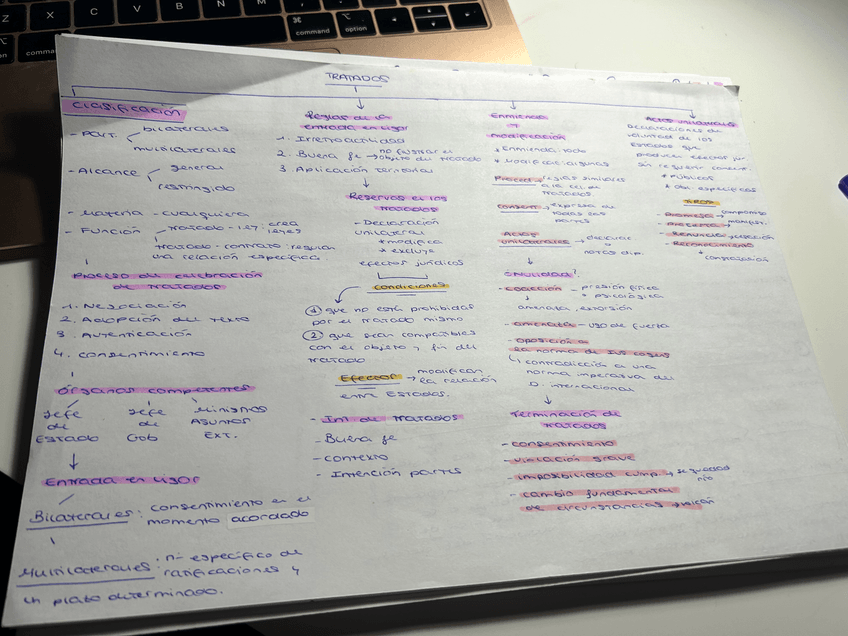 Z X C V B N M
command
option
TRATADOS
Clasificación
- Part.
bilaterales
multilaterales
- Alcance
general
restringido
- Materia - cualquiera
- Función
tratado - ley: crea leyes
tratado - contrato: regula
una relación específica
Proceso de celebración
de tratados
1. Negociación
2. Adopción del texto
3. Autenticación
4. Consentimiento
Órganos competentes
Jefe de Estado
Jefe de Gob
Ministros Asuntos Ext.
Entrada en vigor
Bilaterales: consentimiento en el
momento acordado
Multilaterales: nº específico de
ratificaciones y
un plazo determinado.
Reglas de la
entrada en vigor
1. Irretroactividad
2. Buena fe → no frustrar el
objeto del tratado
3. Aplicación territorial
Reservas en los
tratados
- Declaración
unilateral
* modifica
* excluye
efectos jurídicos
Condiciones
1 que no estén prohibidas
por el tratado mismo
2 que sean compatibles
con el objeto y fin del
tratado
Efectos → modifican
la relación
entre Estados.
- Int de tratados
- Buena fe
- Contexto
- Intención partes
Enmienda
y
modificación
* Enmienda: todo
* Modificac: algunas
Proced. → reglas similares
a la cel de
tratados
Consent. → expreso de
todas las
partes
Actos
unilaterales → declarac
notas dip.
Nulidad
- coacción - presión física
+ psicológica
amenaza, extorsión
- amenaza - uso de fuerza
- oposición a
la norma de Ius cogens
↳ contradicción a una
norma imperativa del
D. internacional
Terminación de
tratados
- consentimiento
- violación grave
- imposibilidad cump. →
- cambio fundamental
de circunstancias →
Actos unilaterales
Declaraciones de
voluntad de los
Estados que
producen efectos jur
sin requerir consent.
* Públicos
* Obj. específicos
Tipos
- Promesa → compromiso
- Protesta → manifest.
- Renuncia →
- Reconocimiento